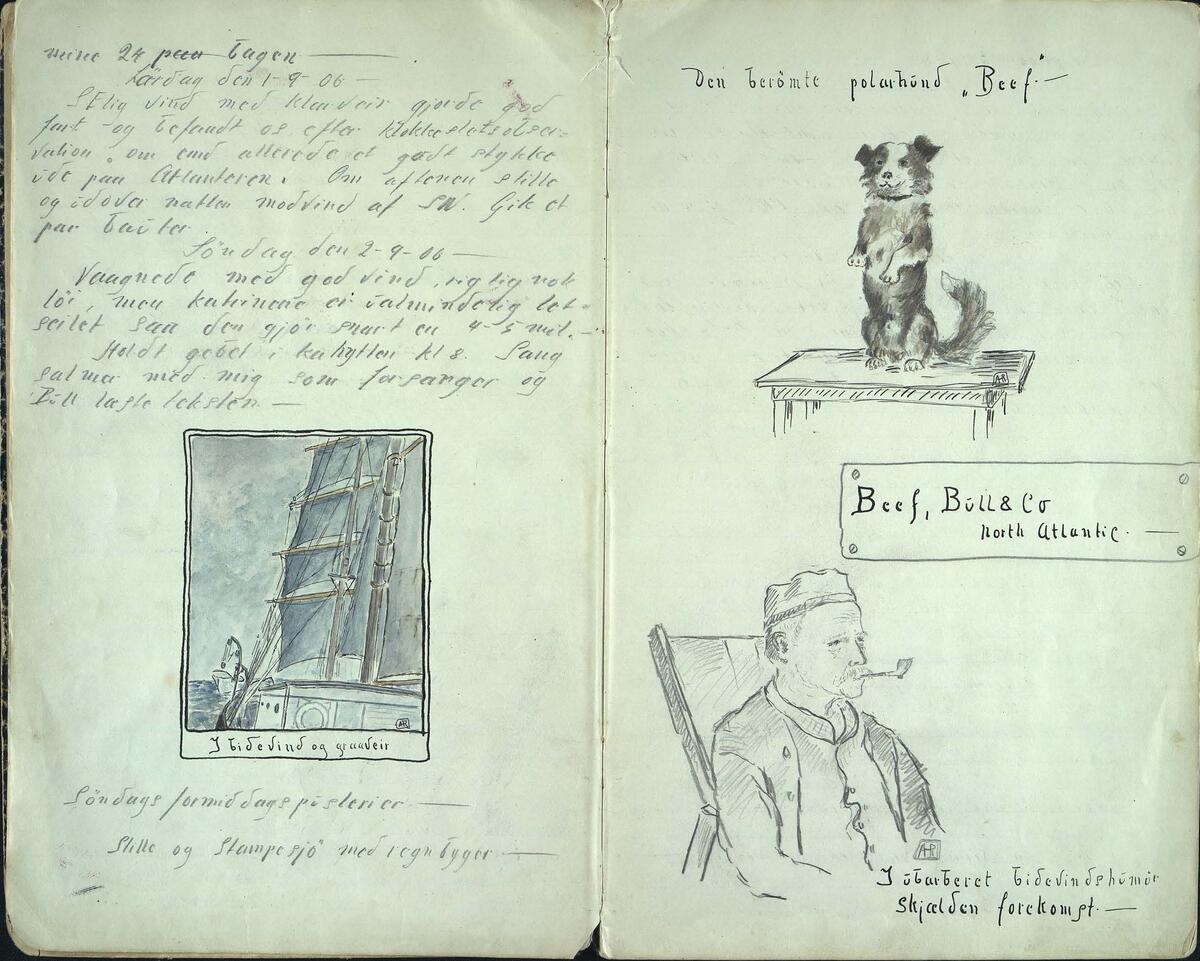 mine 24 paa dagen —
Lørdag den 1-9-06 —
Stlig vind med klarveir gjorde god
fart og befandt os efter klokkesletsobser-
vation, om end allerede et godt stykke
ude paa Atlanteren. Om aftenen stille
og udover natten modvind af SW. Gik et
par bauter.
Söndag den 2-9-06 —
Vaagnede med god vind, rigtig nok
löi, men kutinene er ualmindelig let-
seilet saa den gjör snart en 4-5 mil. —
Holdt gebet i kahytten kl 8. Sang
salmer med mig som forsanger og
Bull læste teksten. —
I bidevind og graaveir
Söndags formiddags —
Stille og Stampesjö med regnbyger —
Den berömte polarhund „Beef“ —
AR
Beef, Bull & Co
North Atlantic. —
AR
I udarberet bidevindshumör
Skjælden forekomst. —